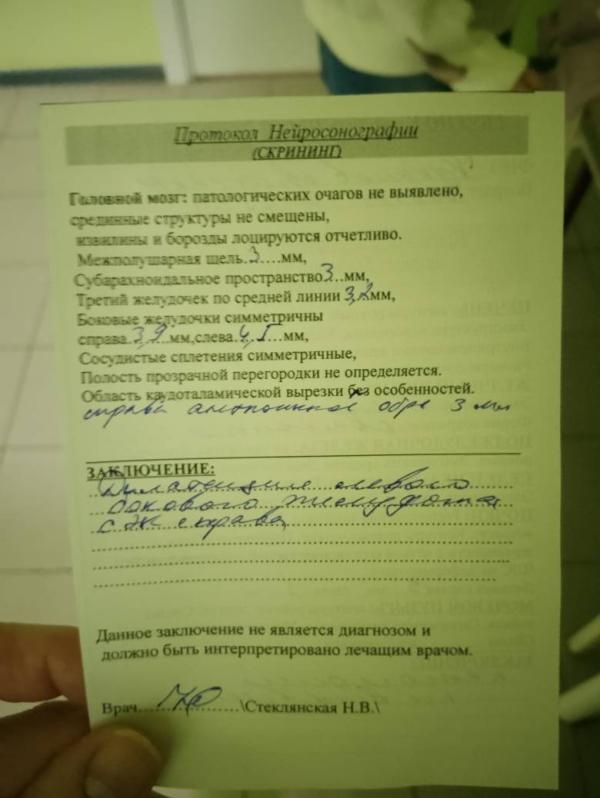 Протокол Нейросонографии
(СКРИНИНГ)
Головной мозг: патологических очагов не выявлено,
срединные структуры не смещены,
извилины и борозды лоцируются отчетливо.
Межполушарная щель..3....мм,
Субарахноидальное пространство3..мм,
Третий желудочек по средней линии 3,2мм,
Боковые желудочки симметричны
справа..3,9 мм,слева.4,5...мм,
Сосудистые сплетения симметричные,
Полость прозрачной перегородки не определяется.
Область каудоталамической вырезки без особенностей.
справа обр 3 мм
ЗАКЛЮЧЕНИЕ:
Дилатация левого
бокового желудочка
СЭК справа
Данное заключение не является диагнозом и
должно быть интерпретировано лечащим врачом.
Врач \Стеклянская Н.В.\